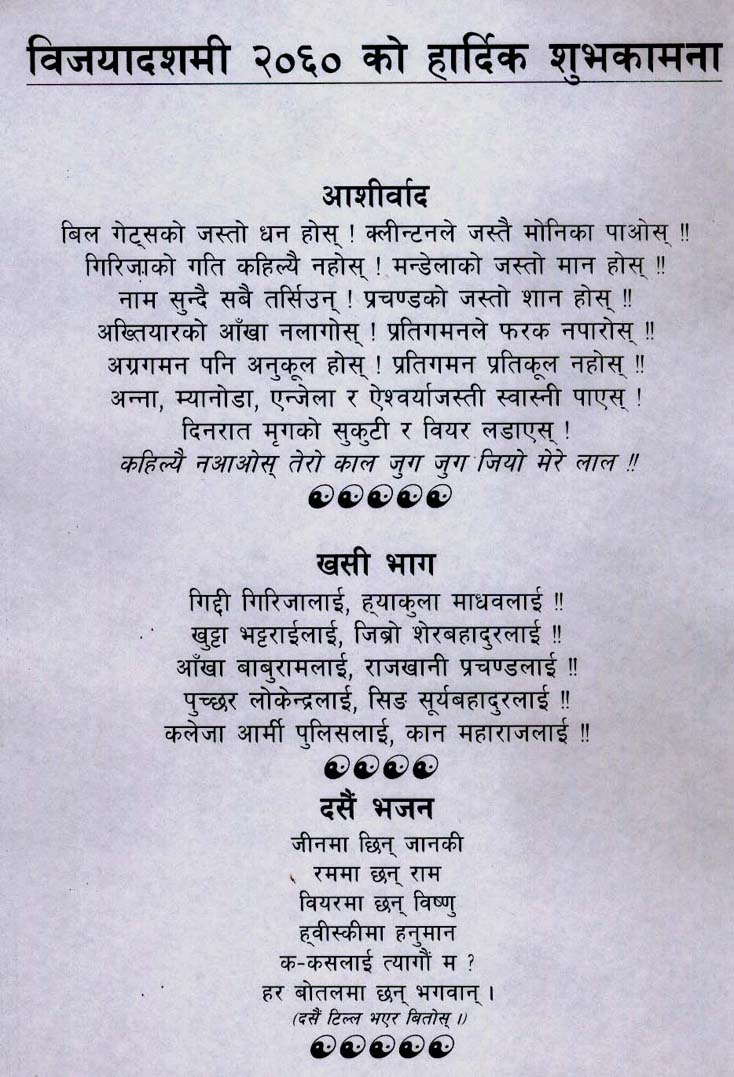 विजयादशमी २०६० को हार्दिक शुभकामना
आशीर्वाद
बिल गेट्सको जस्तो धन होस् ! क्लीन्टनले जस्तै मोनिका पाओस् !!
गिरिजाको गति कहिल्यै नहोस् ! मन्डेलाको जस्तो मान होस् !!
नाम सुन्दै सबै तर्सिउन् ! प्रचण्डको जस्तो शान होस् !!
अख्तियारको आँखा नलागोस् ! प्रतिगमनले फरक नपारोस् !!
अग्रगमन पनि अनुकूल होस् ! प्रतिगमन प्रतिकूल नहोस् !!
अन्ना, म्यानोडा, एन्जेला र ऐश्वर्याजस्ती स्वास्नी पाएस् !
दिनरात मृगको सुकुटी र वियर लडाएस् !
कहिल्यै नआओस् तेरो काल जुग जुग जियो मेरे लाल !!
खसी भाग
गिद्दी गिरिजालाई, ह्याकुला माधवलाई !!
खुट्टा भट्टराईलाई, जिब्रो शेरबहादुरलाई !!
आँखा बाबुरामलाई, राजखानी प्रचण्डलाई !!
पुच्छर लोकेन्द्रलाई, सिङ सूर्यबहादुरलाई !!
कलेजा आर्मी पुलिसलाई, कान महाराजलाई !!
दसैं भजन
जीनमा छिन् जानकी
रममा छन् राम
वियरमा छन् विष्णु
ह्वीस्कीमा हनुमान
क-कसलाई त्यागौं म ?
हर बोतलमा छन् भगवान् ।
(दसैं टिल्ल भएर बितोस् ।)